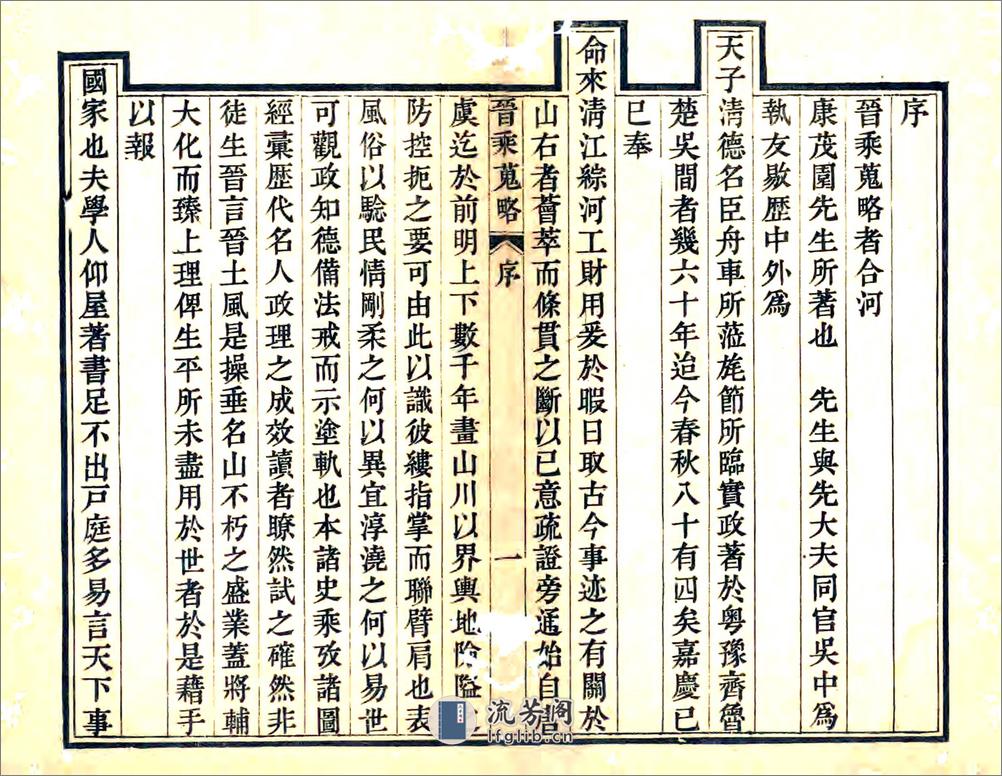 序
晉乘蒐略者合河
康茂園先生所著也　先生與先大夫同官吳中爲
執友敭歷中外爲
天子淸德名臣舟車所蒞旄節所臨實政著於粵豫齊魯
楚吳間者幾六十年迨今春秋八十有四矣嘉慶己
巳奉
命來淸江綜河工財用爰於暇日取古今事迹之有關於
山右者薈萃而條貫之斷以已意疏證旁通始自
晉乘蒐略　序　一
虞迄於前明上下數千年畫山川以界輿地險隘
防控扼之要可由此以識彼縷指掌而聯臂肩也表
風俗以騐民情剛柔之何以異宜淳澆之何以易世
可觀政知德備法戒而示塗軌也本諸史乘攷諸圖
經稾歷代名人政理之成效讀者瞭然試之確然非
徒生晉言晉土風是操垂名山不朽之盛業蓋將輔
大化而臻上理俾生平所未盡用於世者於是藉手
以報
國家也夫學人仰屋著書足不出戸庭多易言天下事
流芳阁
lfglib.cn